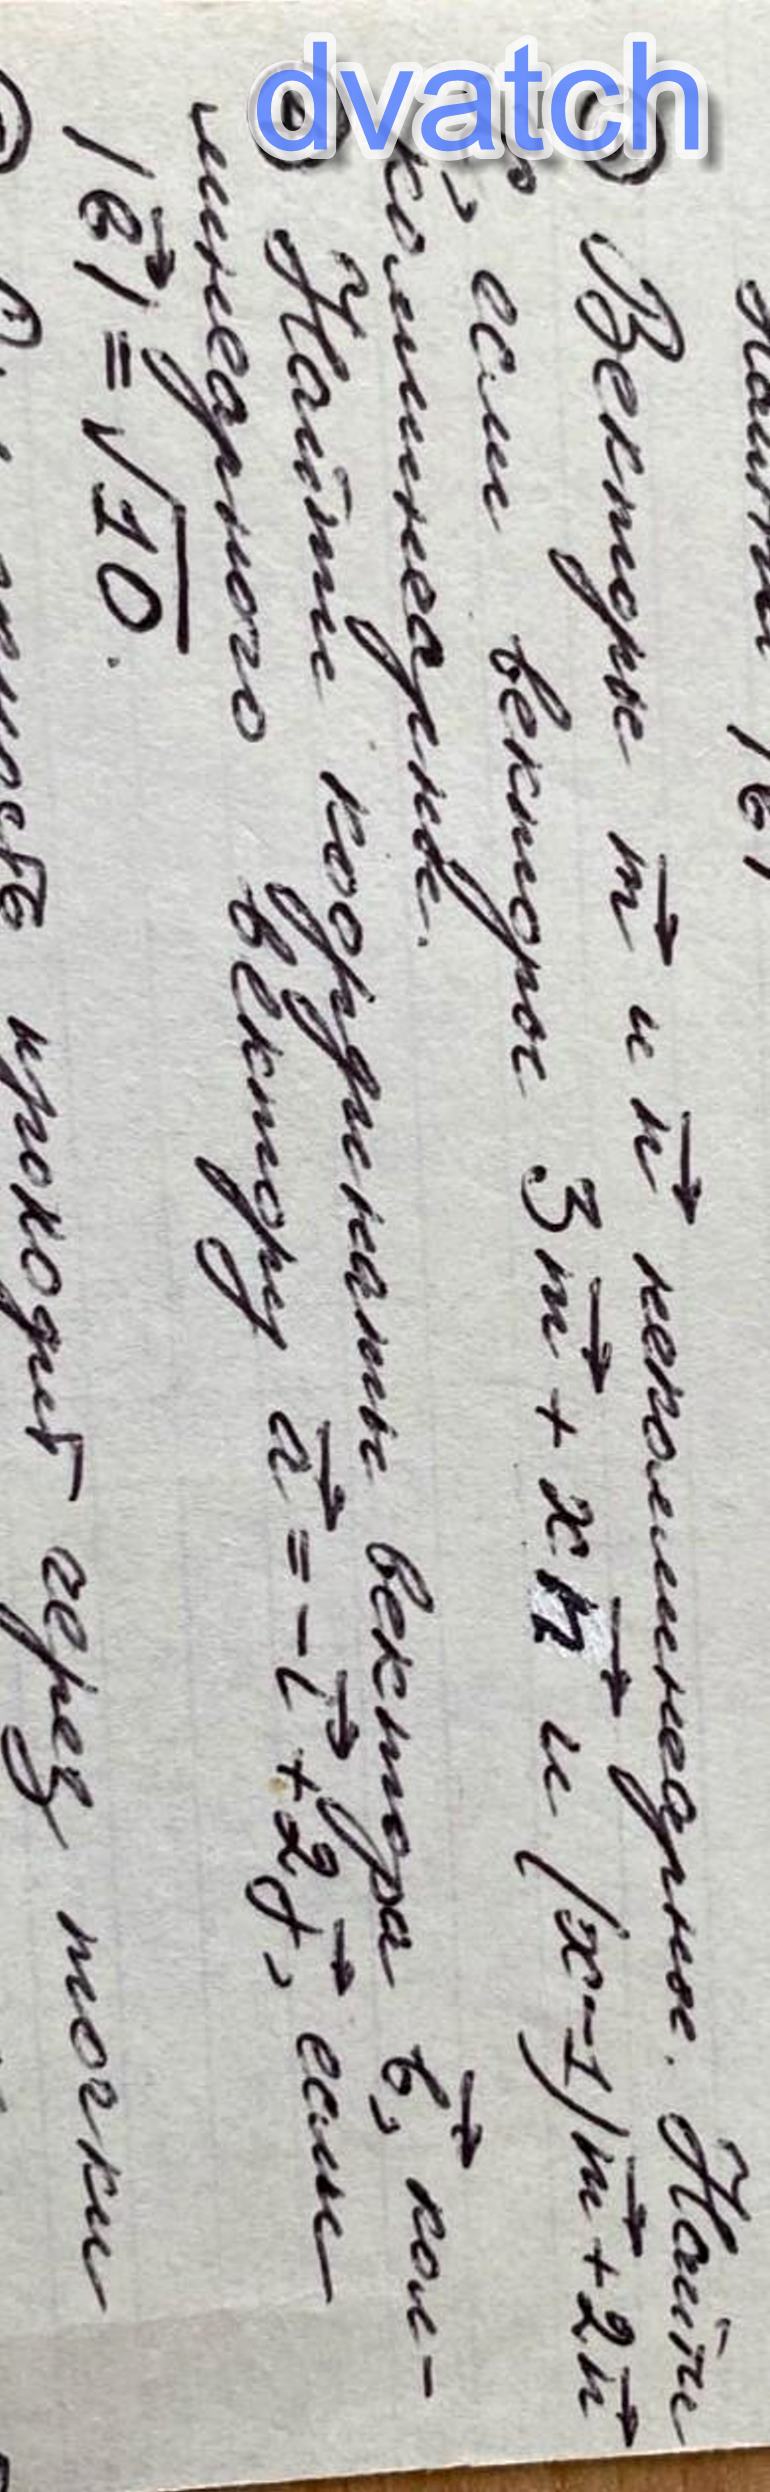 dvatch
Векторы m⃗ и n⃗ неколлинеарные. Найти
x, если векторы 3m⃗ + xn⃗ и (x-1)m⃗ + 2n⃗
коллинеарны.
Найти координаты вектора b⃗, кол-
линеарного вектору a⃗ = -i⃗ + 2j⃗, если
|b⃗| = √10.
проходит через точки